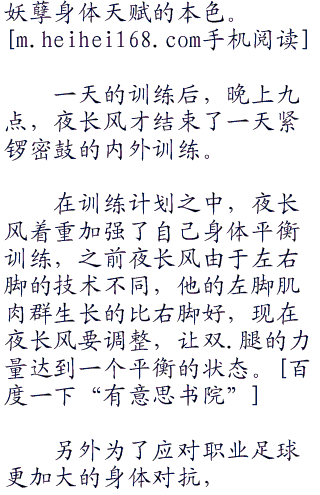 妖孽身体天赋的本色。
[m.heihei168.com手机阅读]
一天的训练后，晚上九
点，夜长风才结束了一天紧
锣密鼓的内外训练。
在训练计划之中，夜长
风着重加强了自己身体平衡
训练，之前夜长风由于左右
脚的技术不同，他的左脚肌
肉群生长的比右脚好，现在
夜长风要调整，让双.腿的力
量达到一个平衡的状态。[百
度一下“有意思书院”]
另外为了应对职业足球
更加大的身体对抗，